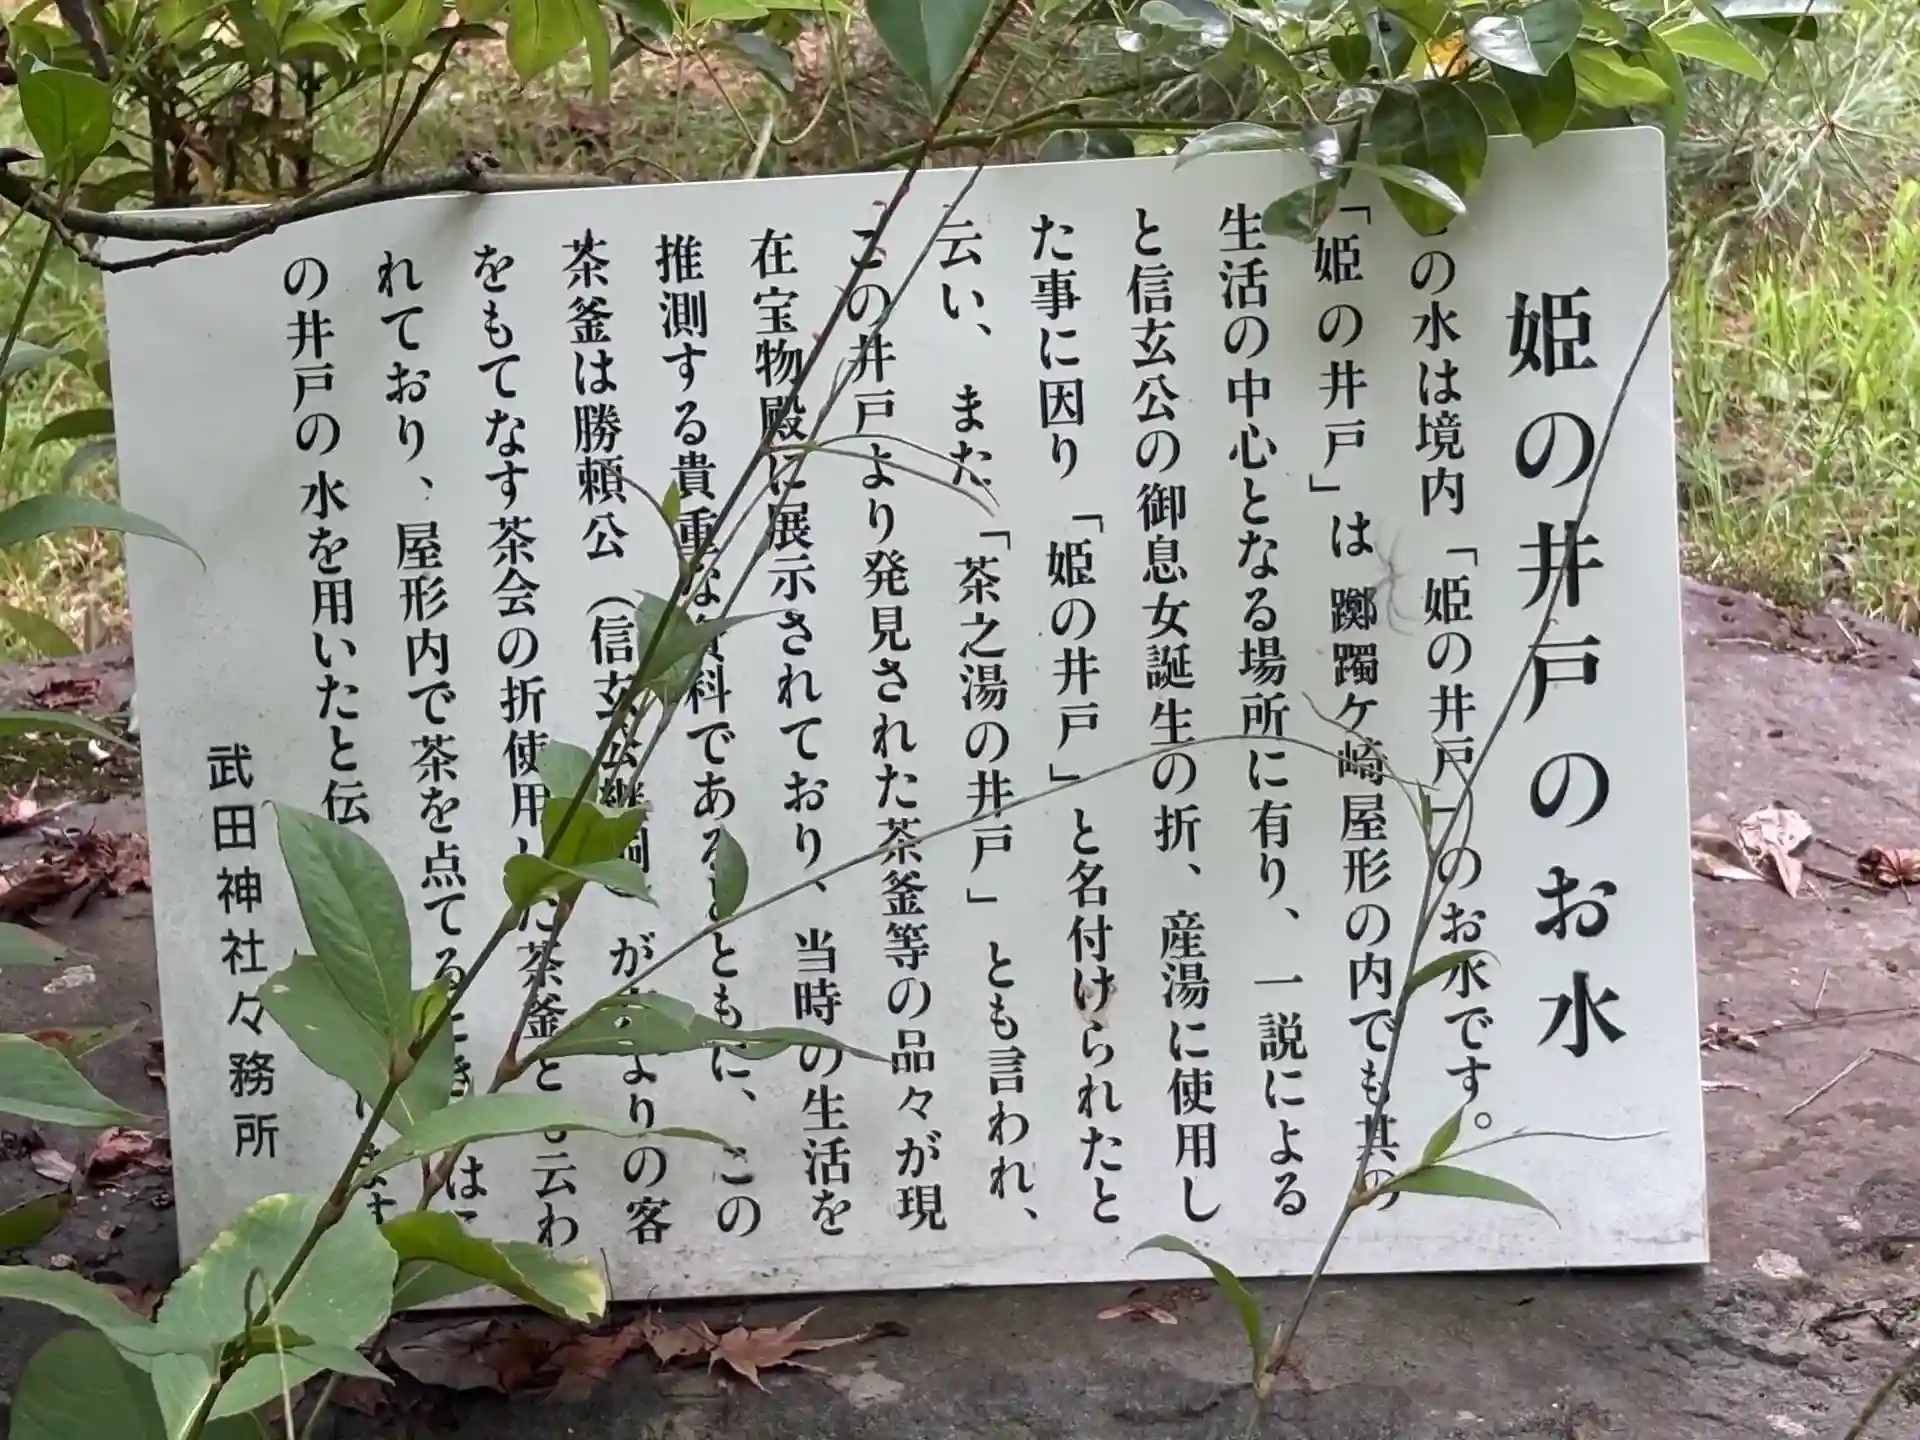 姫の井戸のお水
の水は境内「姫の井戸」のお水です。
「姫の井戸」は躑躅ケ崎屋形の内でも其の
生活の中心となる場所に有り、一説による
と信玄公の御息女誕生の折、産湯に使用し
た事に因り「姫の井戸」と名付けられたと
云い、また「茶之湯の井戸」とも言われ、
この井戸より発見された茶釜等の品々が現
在宝物殿に展示されており、当時の生活を
推測する貴重な資料であるとともに、この
茶釜は勝頼公（信玄公継嗣）が よりの客
をもてなす茶会の折使用した茶釜とも云わ
れており、屋形内で茶を点てるときは
の井戸の水を用いたと伝 ます
武田神社々務所